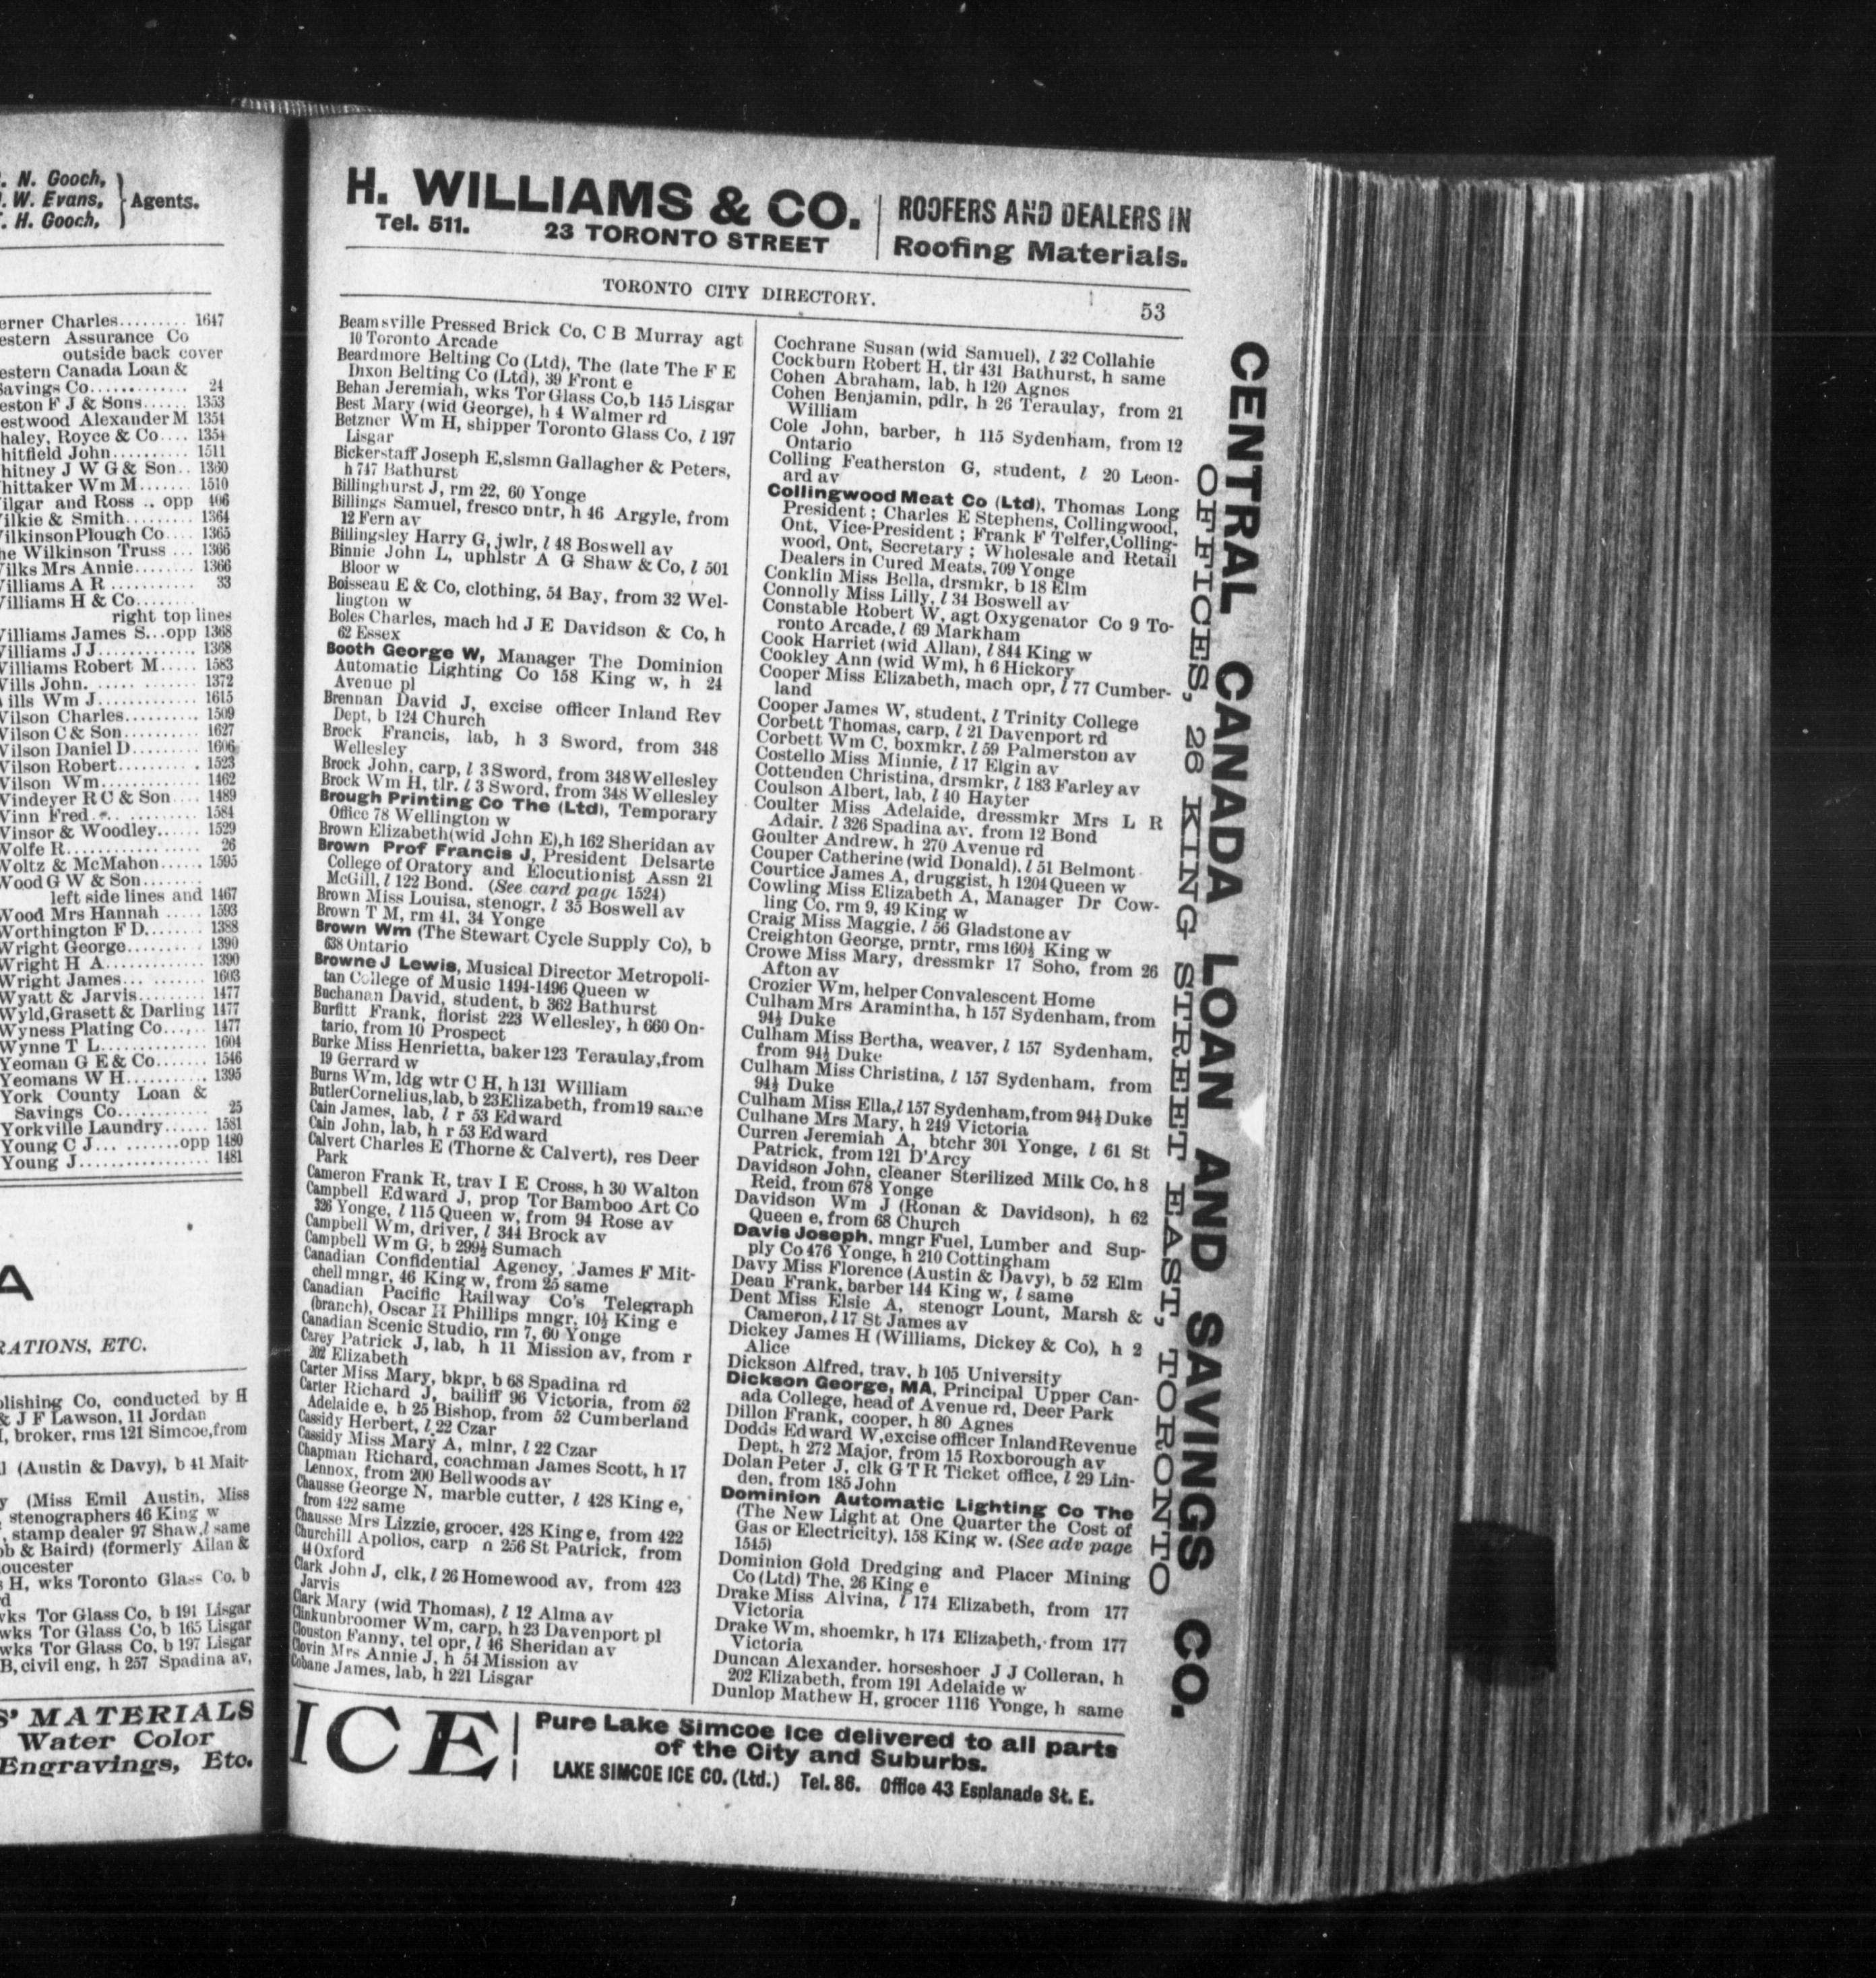 . N. Gooch,
. W. Evans,
. H. Gooch,
Agents.
erner Charles......... 1647
estern Assurance Co
outside back cover
estern Canada Loan &
Savings Co............ 24
eston F J & Sons...... 1353
estwood Alexander M 1354
haley, Royce & Co.... 1354
hitfield John.......... 1511
hitney J W G & Son.. 1360
hittaker Wm M....... 1510
ilgar and Ross .. opp 406
ilkie & Smith......... 1364
ilkinson Plough Co.... 1365
he Wilkinson Truss ... 1366
ilks Mrs Annie........ 1366
illiams A R ........... 33
illiams H & Co........
right top lines
illiams James S...opp 1368
illiams J J............ 1368
illiams Robert M..... 1583
ills John. ..... ....... 1372
ills Wm J............. 1615
ilson Charles.......... 1509
ilson C & Son.......... 1627
ilson Daniel D......... 1606
ilson Robert.......... 1523
ilson Wm............. 1462
indeyer R C & Son.... 1489
inn Fred.... ......... 1584
insor & Woodley...... 1529
Wolfe R................. 26
Woltz & McMahon...... 1595
Wood G W & Son........
left side lines and 1467
Wood Mrs Hannah ..... 1593
Worthington F D........ 1388
Wright George.......... 1390
Wright H A............. 1390
Wright James... ....... 1603
Wyatt & Jarvis......... 1477
Wyld, Grasett & Darling 1477
Wyness Plating Co...... 1477
Wynne T L.............. 1604
Yeoman G E & Co....... 1546
Yeomans W H.......... 1395
York County Loan &
Savings Co............ 25
Yorkville Laundry...... 1581
Young C J... .......opp 1480
Young J................. 1481
A
RATIONS, ETC.
blishing Co, conducted by H
& J F Lawson, 11 Jordan
, broker, rms 121 Simcoe, from
l (Austin & Davy), b 41 Mait-
y (Miss Emil Austin, Miss
, stenographers 46 King w
, stamp dealer 97 Shaw, l same
bb & Baird) (formerly Allan &
oucester
s H, wks Toronto Glass Co, b
rd
wks Tor Glass Co, b 191 Lisgar
wks Tor Glass Co, b 165 Lisgar
wks Tor Glass Co, b 197 Lisgar
B, civil eng, h 257 Spadina av,
S' MATERIALS
Water Color
Engravings, Etc.
H. WILLIAMS & CO.
Tel. 511. 23 TORONTO STREET
ROOFERS AND DEALERS IN
Roofing Materials.
TORONTO CITY DIRECTORY. 53
Beamsville Pressed Brick Co, C B Murray agt
10 Toronto Arcade
Beardmore Belting Co (Ltd), The (late The F E
Dixon Belting Co (Ltd), 39 Front e
Behan Jeremiah, wks Tor Glass Co, b 145 Lisgar
Best Mary (wid George), h 4 Walmer rd
Betzner Wm H, shipper Toronto Glass Co, l 197
Lisgar
Bickerstaff Joseph E, slsmn Gallagher & Peters,
h 747 Bathurst
Billinghurst J, rm 22, 60 Yonge
Billings Samuel, fresco pntr, h 46 Argyle, from
12 Fern av
Billingsley Harry G, jwlr, l 48 Boswell av
Binnie John L, uphlstr A G Shaw & Co, l 501
Bloor w
Boisseau E & Co, clothing, 54 Bay, from 32 Wel-
lington w
Boles Charles, mach hd J E Davidson & Co, h
62 Essex
Booth George W, Manager The Dominion
Automatic Lighting Co 158 King w, h 24
Avenue pl
Brennan David J, excise officer Inland Rev
Dept, b 124 Church
Brock Francis, lab, h 3 Sword, from 348
Wellesley
Brock John, carp, l 3 Sword, from 348 Wellesley
Brock Wm H, tlr, l 3 Sword, from 348 Wellesley
Brough Printing Co The (Ltd), Temporary
Office 78 Wellington w
Brown Elizabeth (wid John E), h 162 Sheridan av
Brown Prof Francis J, President Delsarte
College of Oratory and Elocutionist Assn 21
McGill, l 122 Bond. (See card page 1524)
Brown Miss Louisa, stenogr, l 35 Boswell av
Brown T M, rm 41, 34 Yonge
Brown Wm (The Stewart Cycle Supply Co), b
638 Ontario
Browne J Lewis, Musical Director Metropoli-
tan College of Music 1494-1496 Queen w
Buchanan David, student, b 362 Bathurst
Burfitt Frank, florist 223 Wellesley, h 660 On-
tario, from 10 Prospect
Burke Miss Henrietta, baker 123 Teraulay, from
19 Gerrard w
Burns Wm, ldg wtr C H, h 131 William
Butler Cornelius, lab, b 23 Elizabeth, from 19 same
Cain James, lab, l r 53 Edward
Cain John, lab, h r 53 Edward
Calvert Charles E (Thorne & Calvert), res Deer
Park
Cameron Frank R, trav I E Cross, h 30 Walton
Campbell Edward J, prop Tor Bamboo Art Co
326 Yonge, l 115 Queen w, from 94 Rose av
Campbell Wm, driver, l 344 Brock av
Campbell Wm G, b 299½ Sumach
Canadian Confidential Agency, James F Mit-
chell mngr, 46 King w, from 25 same
Canadian Pacific Railway Co's Telegraph
(branch), Oscar H Phillips mngr, 10½ King e
Canadian Scenic Studio, rm 7, 60 Yonge
Carey Patrick J, lab, h 11 Mission av, from r
202 Elizabeth
Carter Miss Mary, bkpr, b 68 Spadina rd
Carter Richard J, bailiff 96 Victoria, from 52
Adelaide e, h 25 Bishop, from 52 Cumberland
Cassidy Herbert, l 22 Czar
Cassidy Miss Mary A, mlnr, l 22 Czar
Chapman Richard, coachman James Scott, h 17
Lennox, from 200 Bellwoods av
Chausse George N, marble cutter, l 428 King e,
from 422 same
Chausse Mrs Lizzie, grocer, 428 King e, from 422
Churchill Apollos, carp h 256 St Patrick, from
44 Oxford
Clark John J, clk, l 26 Homewood av, from 423
Jarvis
Clark Mary (wid Thomas), l 12 Alma av
Clinkunbroomer Wm, carp, h 23 Davenport pl
Clouston Fanny, tel opr, l 46 Sheridan av
Clovin Mrs Annie J, h 54 Mission av
Cobane James, lab, h 221 Lisgar
Cochrane Susan (wid Samuel), l 32 Collahie
Cockburn Robert H, tlr 431 Bathurst, h same
Cohen Abraham, lab, h 120 Agnes
Cohen Benjamin, pdlr, h 26 Teraulay, from 21
William
Cole John, barber, h 115 Sydenham, from 12
Ontario
Colling Featherston G, student, l 20 Leon-
ard av
Collingwood Meat Co (Ltd), Thomas Long
President; Charles E Stephens, Collingwood,
Ont, Vice-President; Frank F Telfer, Colling-
wood, Ont, Secretary; Wholesale and Retail
Dealers in Cured Meats, 709 Yonge
Conklin Miss Bella, drsmkr, b 18 Elm
Connolly Miss Lilly, l 34 Boswell av
Constable Robert W, agt Oxygenator Co 9 To-
ronto Arcade, l 69 Markham
Cook Harriet (wid Allan), l 844 King w
Cookley Ann (wid Wm), h 6 Hickory
Cooper Miss Elizabeth, mach opr, l 77 Cumber-
land
Cooper James W, student, l Trinity College
Corbett Thomas, carp, l 21 Davenport rd
Corbett Wm C, boxmkr, l 59 Palmerston av
Costello Miss Minnie, l 17 Elgin av
Cottenden Christina, drsmkr, l 183 Farley av
Coulson Albert, lab, l 40 Hayter
Coulter Miss Adelaide, dressmkr Mrs L R
Adair, l 326 Spadina av, from 12 Bond
Goulter Andrew, h 270 Avenue rd
Couper Catherine (wid Donald), l 51 Belmont
Courtice James A, druggist, h 1204 Queen w
Cowling Miss Elizabeth A, Manager Dr Cow-
ling Co, rm 9, 49 King w
Craig Miss Maggie, l 56 Gladstone av
Creighton George, prntr, rms 160½ King w
Crowe Miss Mary, dressmkr 17 Soho, from 26
Afton av
Crozier Wm, helper Convalescent Home
Culham Mrs Aramintha, h 157 Sydenham, from
94½ Duke
Culham Miss Bertha, weaver, l 157 Sydenham,
from 94½ Duke
Culham Miss Christina, l 157 Sydenham, from
94½ Duke
Culham Miss Ella, l 157 Sydenham, from 94½ Duke
Culhane Mrs Mary, h 249 Victoria
Curren Jeremiah A, btchr 301 Yonge, l 61 St
Patrick, from 121 D'Arcy
Davidson John, cleaner Sterilized Milk Co, h 8
Reid, from 678 Yonge
Davidson Wm J (Ronan & Davidson), h 62
Queen e, from 68 Church
Davis Joseph, mngr Fuel, Lumber and Sup-
ply Co 476 Yonge, h 210 Cottingham
Davy Miss Florence (Austin & Davy), b 52 Elm
Dean Frank, barber 144 King w, l same
Dent Miss Elsie A, stenogr Lount, Marsh &
Cameron, l 17 St James av
Dickey James H (Williams, Dickey & Co), h 2
Alice
Dickson Alfred, trav, h 105 University
Dickson George, MA, Principal Upper Can-
ada College, head of Avenue rd, Deer Park
Dillon Frank, cooper, h 80 Agnes
Dodds Edward W, excise officer Inland Revenue
Dept, h 272 Major, from 15 Roxborough av
Dolan Peter J, clk G T R Ticket office, l 29 Lin-
den, from 185 John
Dominion Automatic Lighting Co The
(The New Light at One Quarter the Cost of
Gas or Electricity), 158 King w. (See adv page
1545)
Dominion Gold Dredging and Placer Mining
Co (Ltd) The, 26 King e
Drake Miss Alvina, l 174 Elizabeth, from 177
Victoria
Drake Wm, shoemkr, h 174 Elizabeth, from 177
Victoria
Duncan Alexander, horseshoer J J Colleran, h
202 Elizabeth, from 191 Adelaide w
Dunlop Mathew H, grocer 1116 Yonge, h same
CENTRAL CANADA LOAN AND SAVINGS CO.
OFFICES, 26 KING STREET EAST, TORONTO
ICE
Pure Lake Simcoe Ice delivered to all parts
of the City and Suburbs.
LAKE SIMCOE ICE CO. (Ltd.) Tel. 86. Office 43 Esplanade St. E.